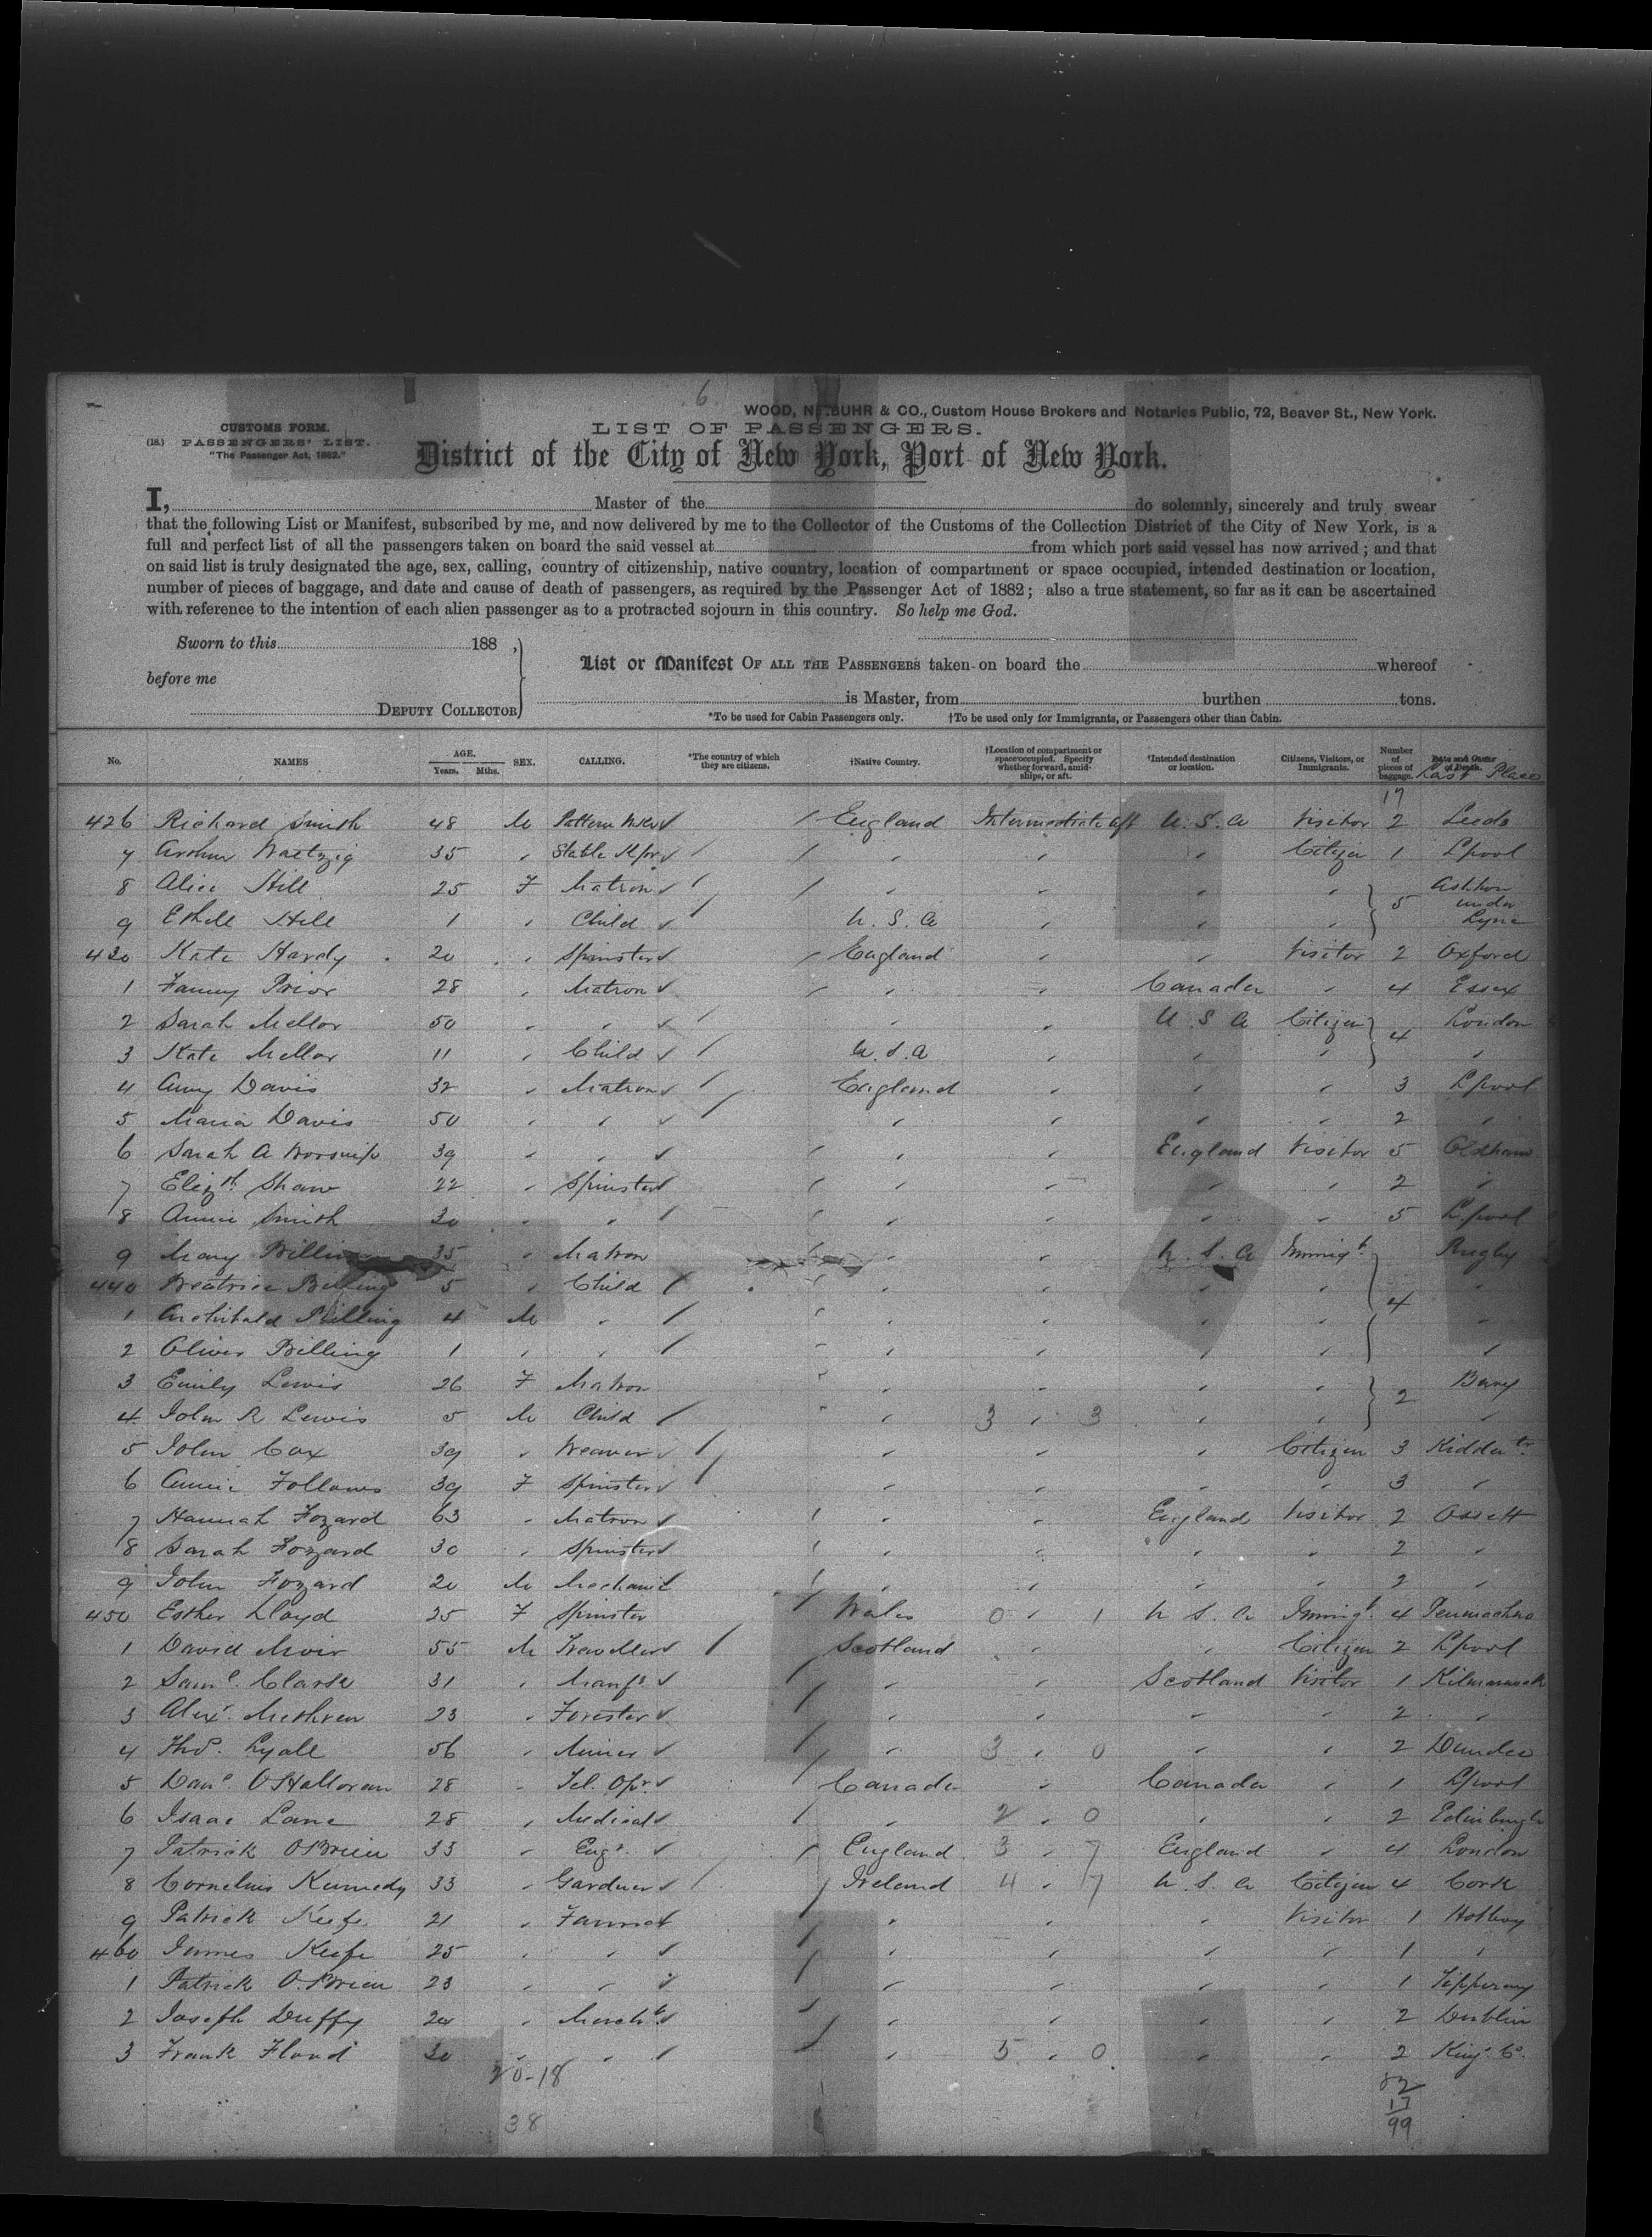 6
WOOD, NIEBUHR & CO., Custom House Brokers and Notaries Public, 72, Beaver St., New York.
CUSTOMS FORM.
(18.) PASSENGERS' LIST.
"The Passenger Act, 1882."
LIST OF PASSENGERS.
District of the City of New York, Port of New York.
I, Master of the do solemnly, sincerely and truly swear
that the following List or Manifest, subscribed by me, and now delivered by me to the Collector of the Customs of the Collection District of the City of New York, is a
full and perfect list of all the passengers taken on board the said vessel at from which port said vessel has now arrived; and that
on said list is truly designated the age, sex, calling, country of citizenship, native country, location of compartment or space occupied, intended destination or location,
number of pieces of baggage, and date and cause of death of passengers, as required by the Passenger Act of 1882; also a true statement, so far as it can be ascertained
with reference to the intention of each alien passenger as to a protracted sojourn in this country. So help me God.
Sworn to this 188 ,
before me
DEPUTY COLLECTOR
List or Manifest OF ALL THE PASSENGERS taken on board the whereof
is Master, from burthen tons.
*To be used for Cabin Passengers only. †To be used only for Immigrants, or Passengers other than Cabin.
No. NAMES AGE. Years. Mths. SEX. CALLING. *The country of which they are citizens. †Native Country. †Location of compartment or space occupied. Specify whether forward, amidships, or aft. †Intended destination or location. Citizens, Visitors, or Immigrants. Number of pieces of baggage. Date and Cause of Death. Last Place
17
426 Richard Smith 48 M Pattern Mkr England Intermediate aft U.S.A Visitor 2 Leeds
7 Arthur Waetzig 35 " Stable Kpr " " " Citizen 1 Lpool
8 Alice Hill 25 F Matron " " " " 5 Ashton under Lyne
9 Ethell Hill 1 " Child U.S.A " " "
430 Kate Hardy 20 " Spinster England " " Visitor 2 Oxford
1 Fanny Prior 28 " Matron " " Canada " 4 Essex
2 Sarah Mellor 50 " " " " U S A Citizen 4 London
3 Kate Mellor 11 " Child U.S.A " " " "
4 Amy Davis 32 " Matron England " " " 3 Lpool
5 Maria Davis 50 " " " " " " 2 "
6 Sarah A Worsnip 39 " " " " England Visitor 5 Oldham
7 Elizth Shaw 22 " Spinster " " " " 2 "
8 Annie Smith 30 " " " " " " 5 Lpool
9 Mary Billing 35 " Matron " " U.S.A Immigt Rugby
440 Beatrice Billing 5 " Child " " " " 4 "
1 Archibald Billing 4 M " " " " " "
2 Oliver Billing 1 " " " " " " "
3 Emily Lewis 26 F Matron " " " " 2 Bury
4 John R Lewis 5 M Child " 3 " 3 " " "
5 John Cox 39 " Weaver " " " Citizen 3 Kiddertr
6 Annie Follows 39 F Spinster " " " " 3 "
7 Hannah Fozard 63 " Matron " " England Visitor 2 Ossett
8 Sarah Fozzard 30 " Spinster " " " " 2 "
9 John Fozard 20 M Mechanic " " " " 2 "
450 Esther Lloyd 25 F Spinster Wales 0 " 1 U S A Immigt 4 Penmachno
1 David Muir 55 M Traveller Scotland " " Citizen 2 Lpool
2 Saml Clarke 31 " Manfr " " Scotland Visitor 1 Kilmarnock
3 Alexr Methven 23 " Forester " " " " 2 "
4 Thos Lyall 56 " Miner " 3 " 0 " " 2 Dundee
5 Danl O'Halloran 28 " Tel. Opr Canada " Canada " 1 Lpool
6 Isaac Lane 28 " Medical " 2 " 0 " " 2 Edinburgh
7 Patrick O'Brien 33 " Engr England 3 " 7 England " 4 London
8 Cornelius Kennedy 33 " Gardner Ireland 4 " 7 U.S.A Citizen 4 Cork
9 Patrick Keefe 21 " Farmer " " " Visitor 1
460 James Keefe 25 " " " " " " 1 "
1 Patrick O'Brien 23 " " " " " " 1 Tipperary
2 Joseph Duffy 24 " Mercht " " " " 2 Dublin
3 Frank Flood 30 " " " 5 " 0 " " 2 Kings Co.
20-18
38
82
17
99